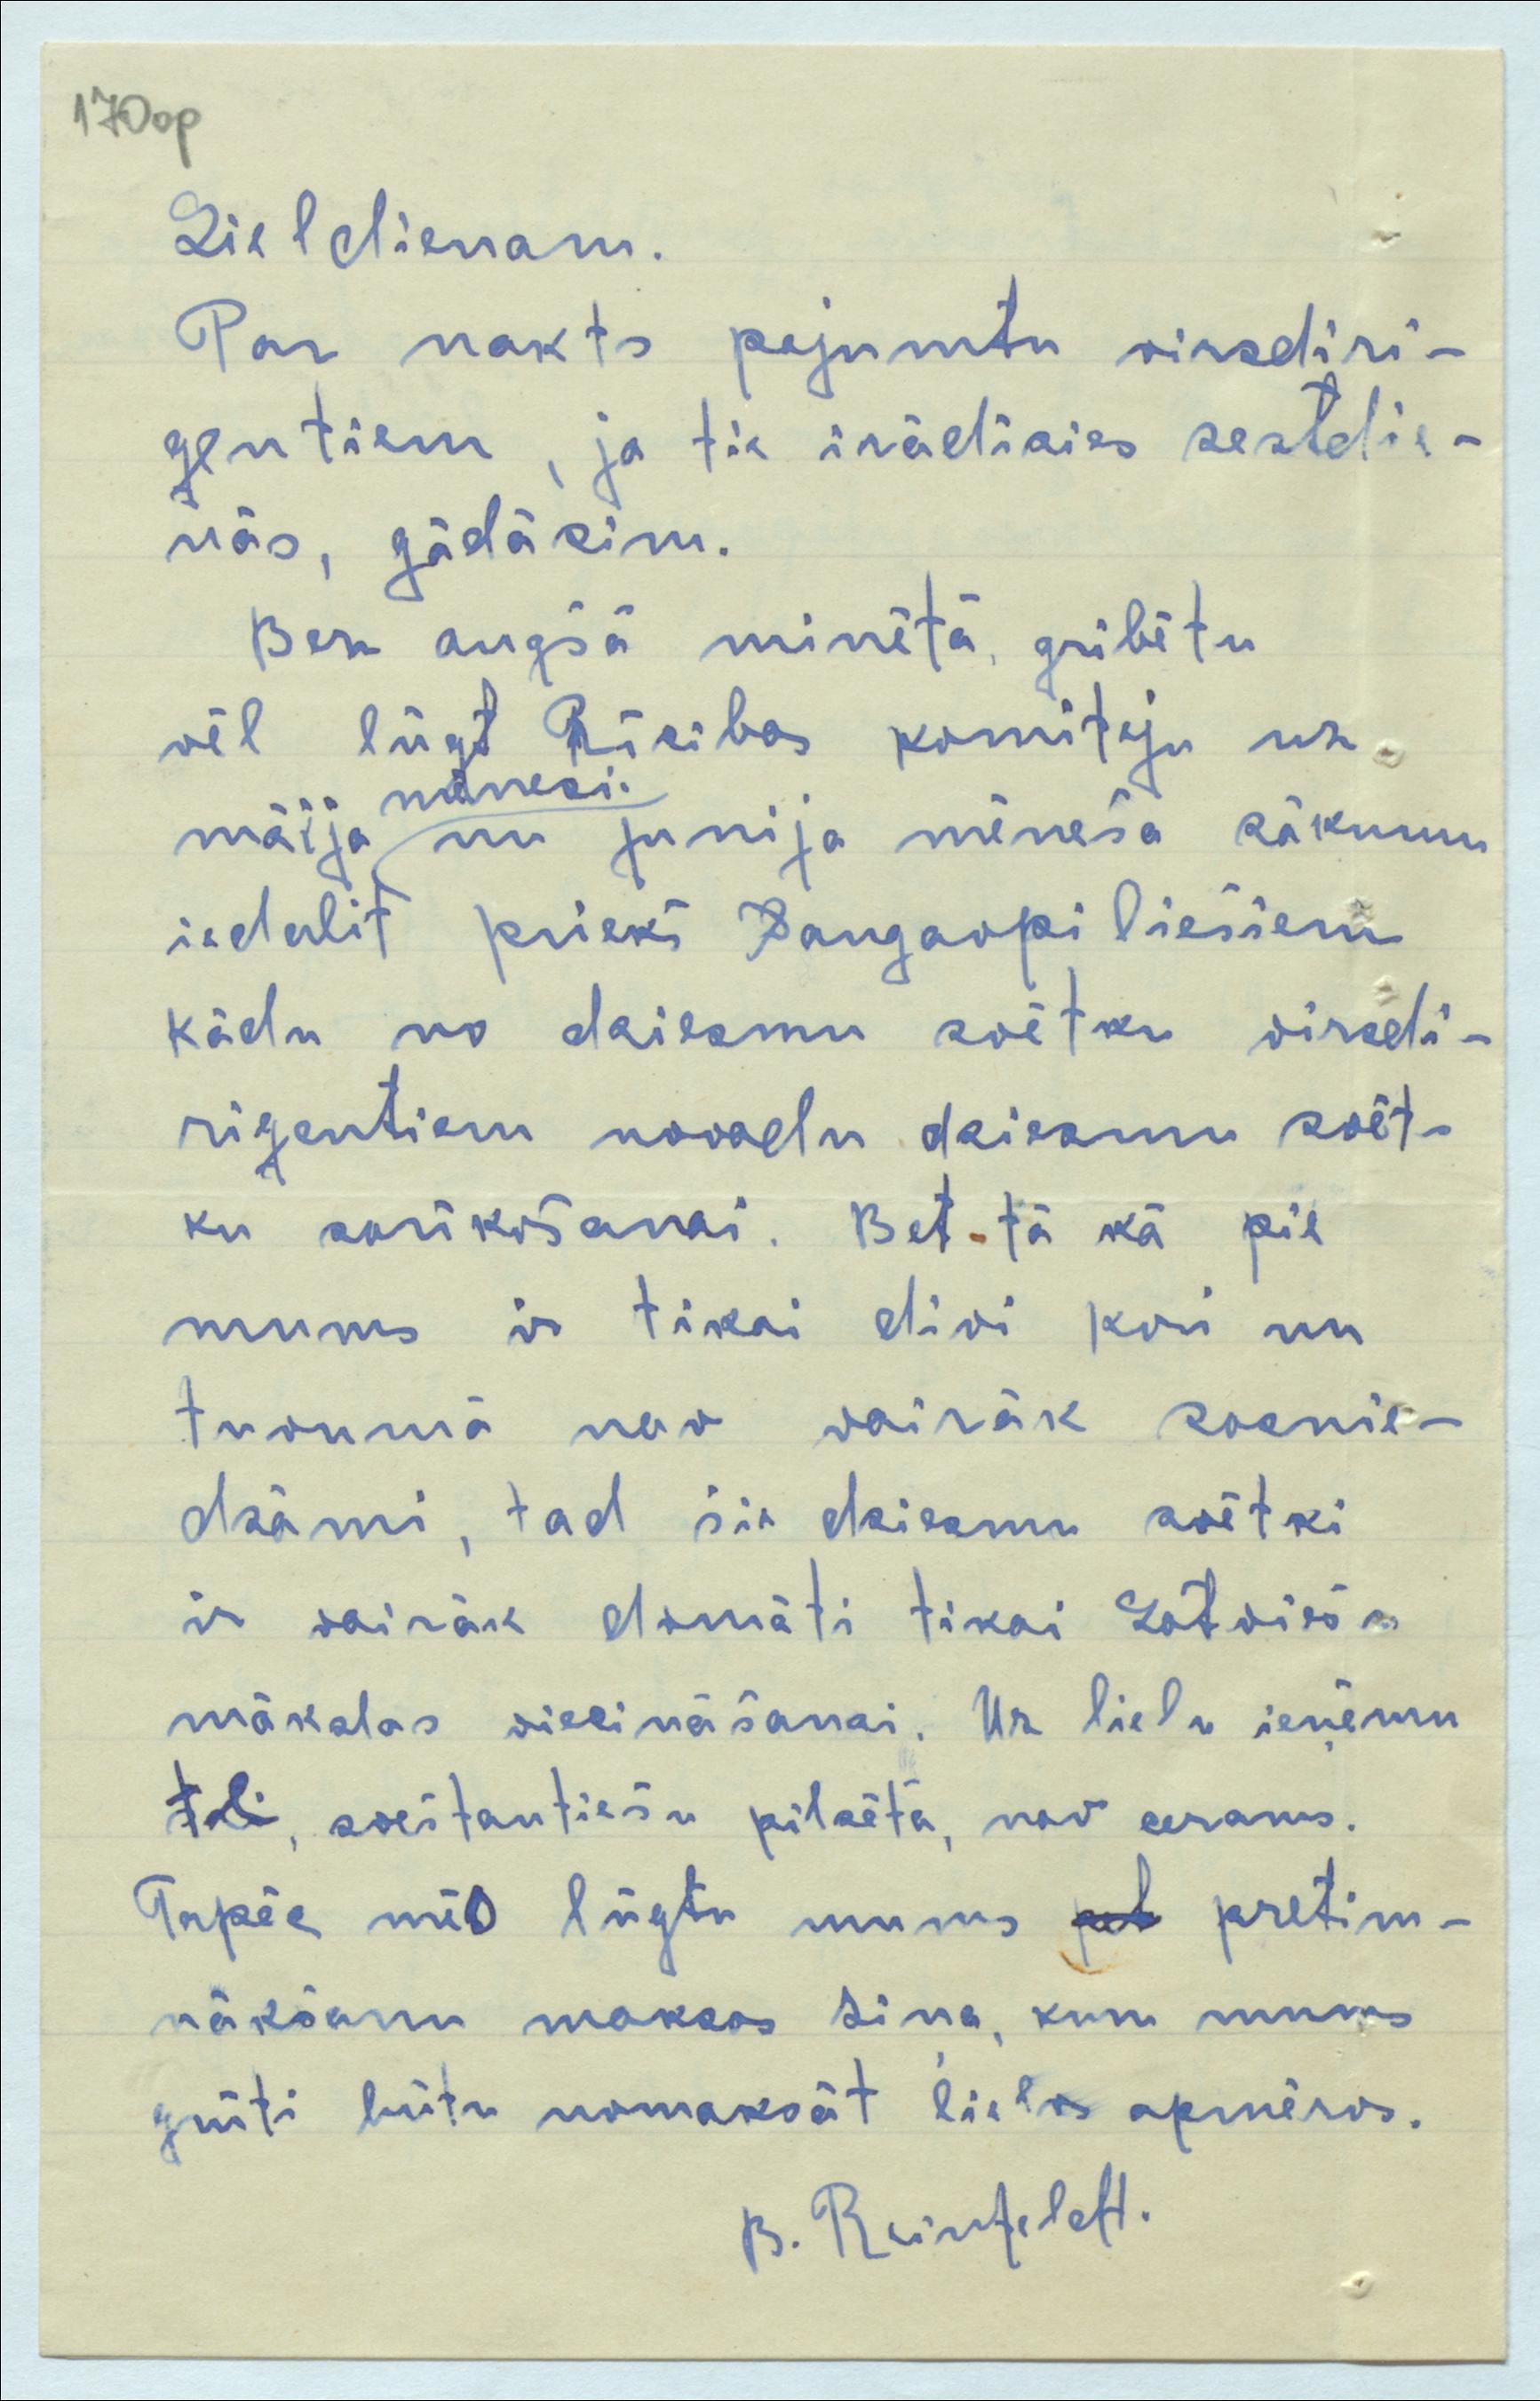 170op
Lieldienam.
Par nakts pajumtu virsdiri-
gentiem, ja tie izrādīsies sestdie-
nās, gādāsim.
Bez augšā minētā, gribētu
vēl lūgt Rīcibas komiteju uz
mēnesi.
maija un junija mēneša sākumu
iedalīt priekš Daugavpiliešiem
kādu no dziesmu svētku virsdi-
rigentiem novadu dziesmu svēt-
ku sarīkošanai. Bet tā kā pie
mums ir tikai divi kori un
tuvumā nav vairāk sasnie-
dzāmi, tad šie dziesmu svētki
ir vairāk domāti tikai Latviešu
mākslas vicināšanai. Uz lielu ieņēmu
tali, sveštautiešu pilsētā, nav cerams.
Tapēc mēs lūgtu mums pretim-
nākšanu maksas ziņa, kuru mums
grūti būtu nomaksāt lielos apmēros.
B. Reinfeldt.